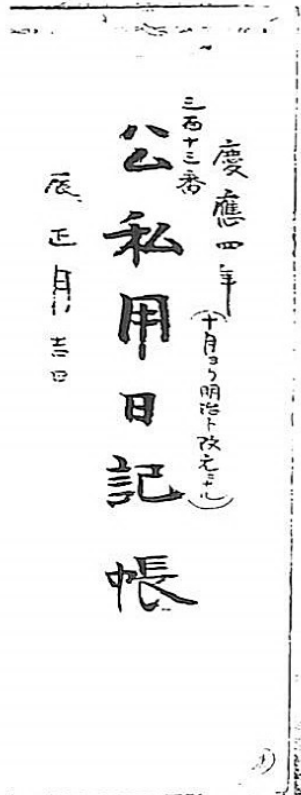 慶應四年
(十月ヨリ明治ト改元ニナル)
三百十三番
公私用日記帳
辰正月吉日